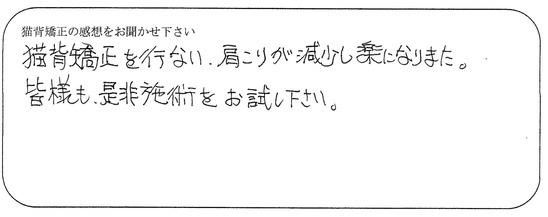 猫背矯正の感想をお聞かせ下さい
猫背矯正を行ない、肩こりが減少し楽になりまた。
皆様も、是非施術をお試し下さい。